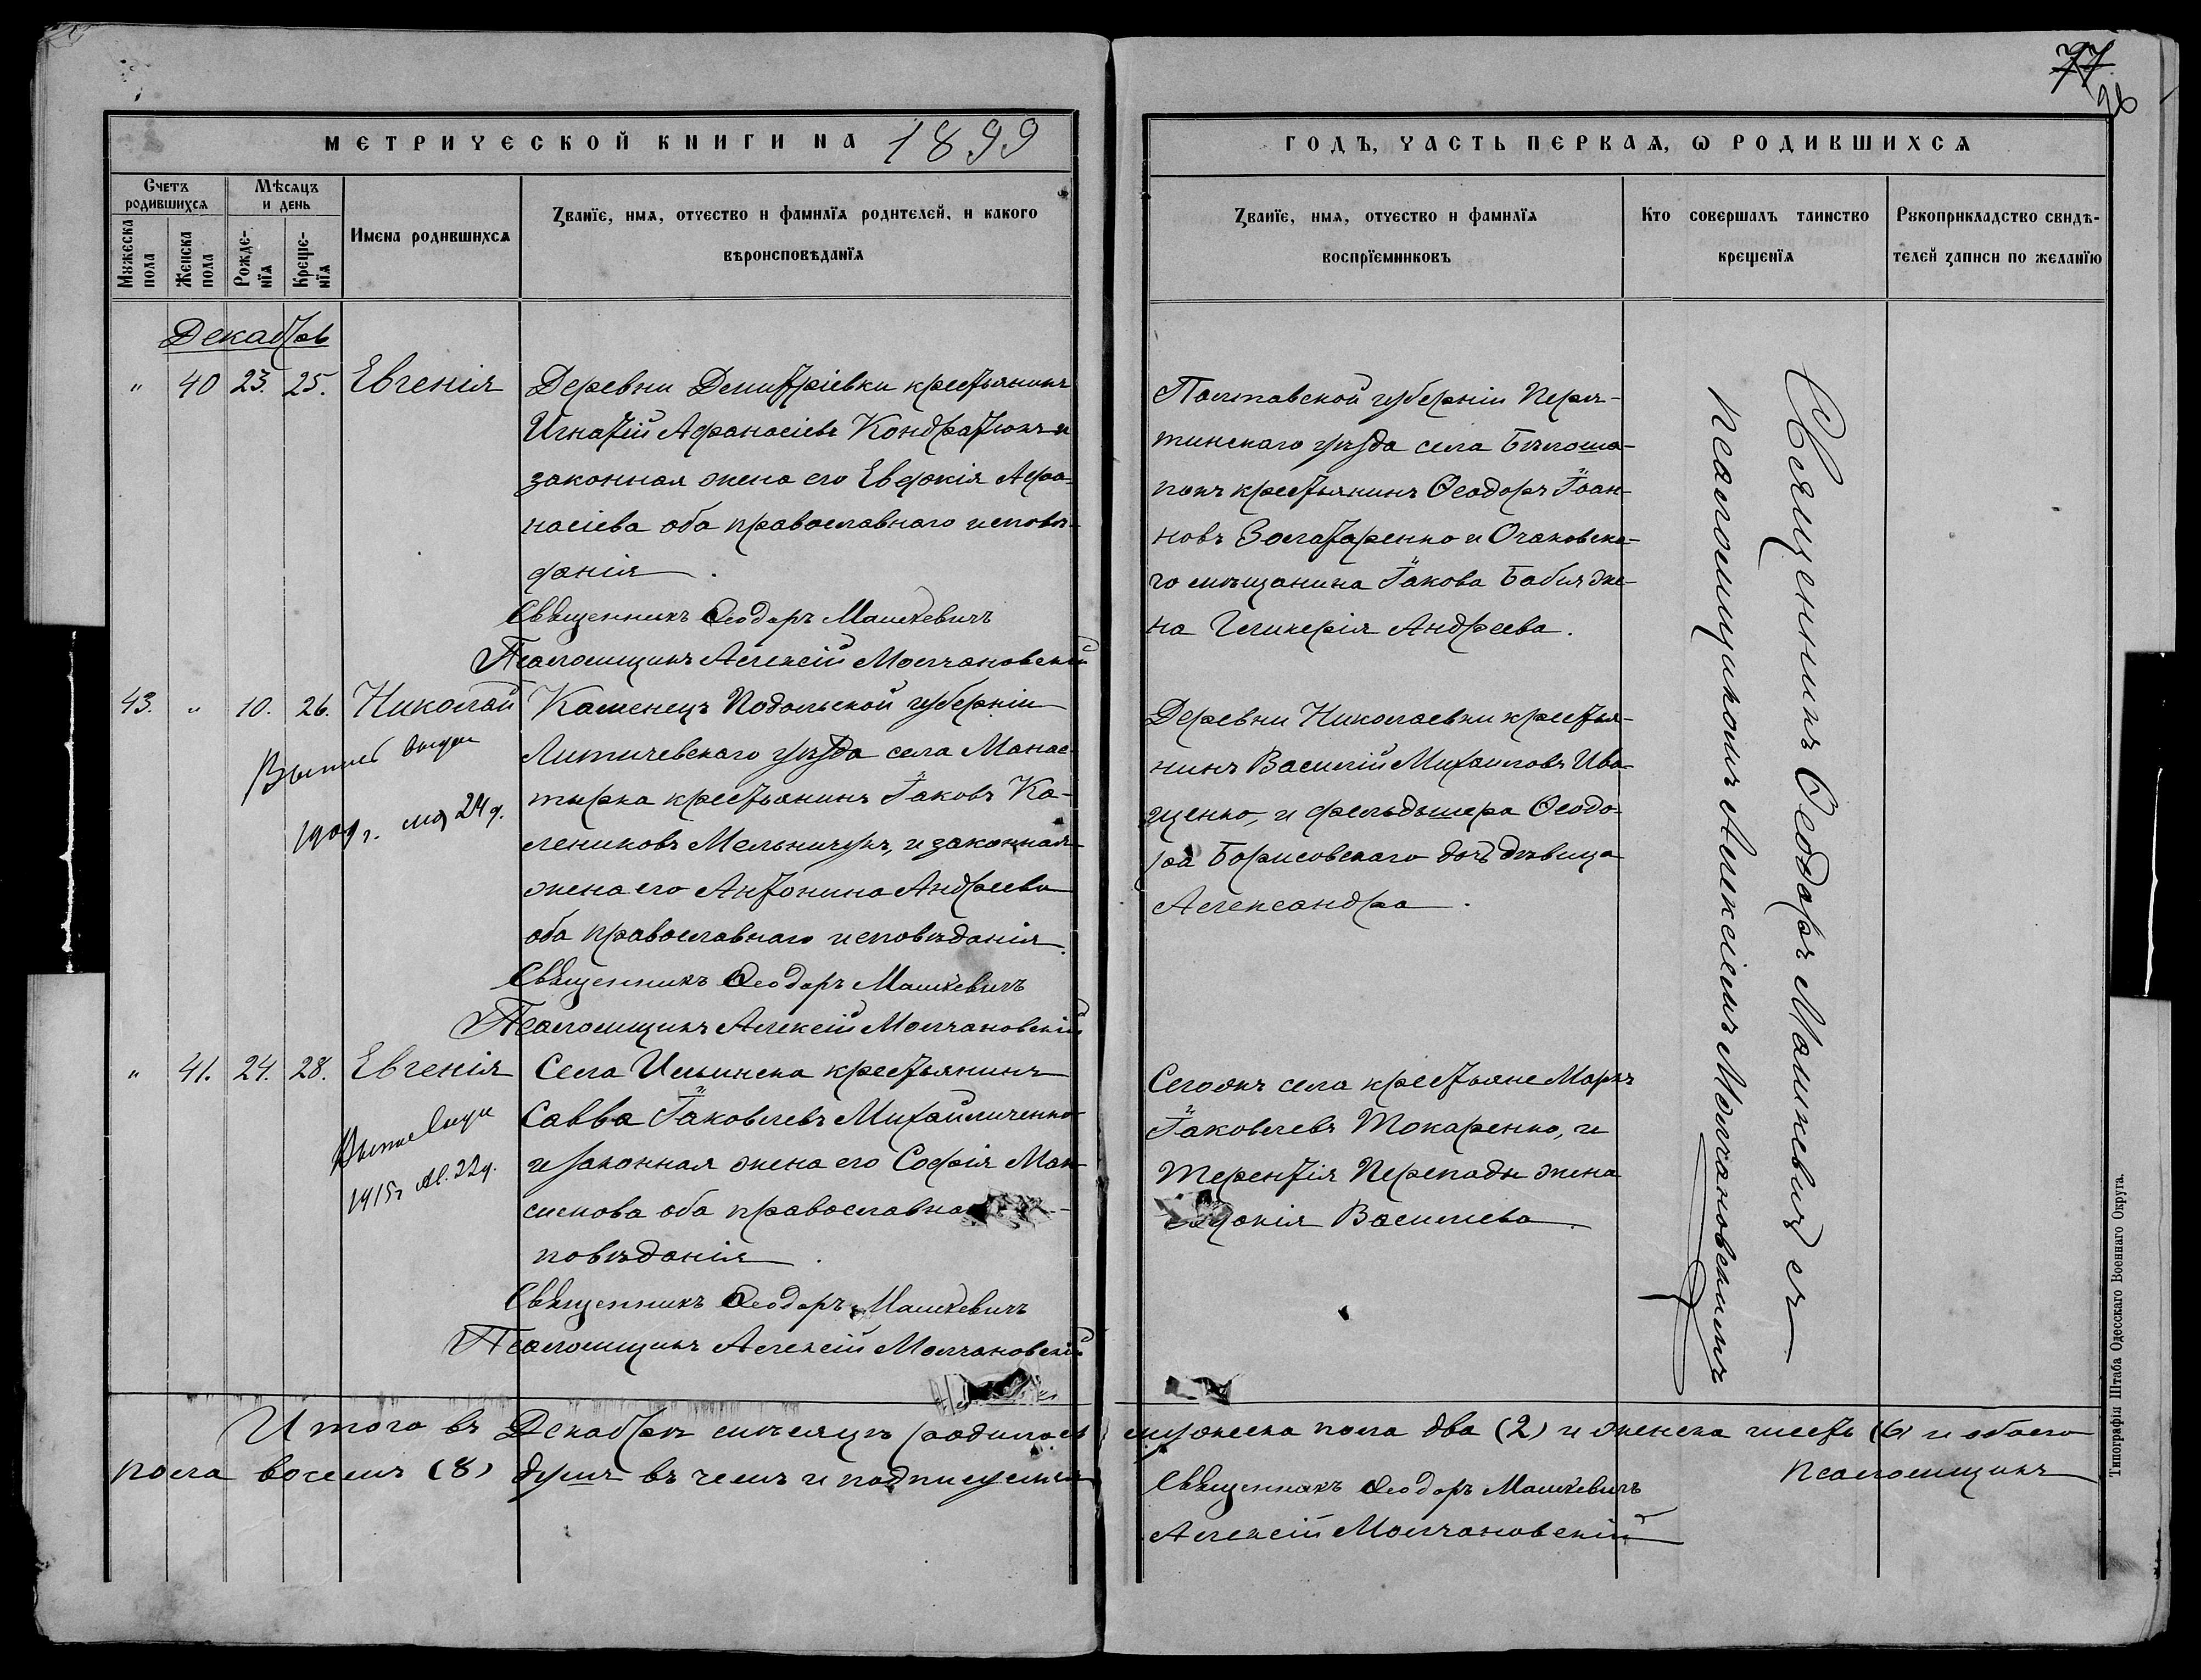 77
96
МЕТРИЧЕСКОЙ КНИГИ НА 1899
ГОДЪ, ЧАСТЬ ПЕРВАЯ, Ѡ РОДИВШИХСЯ
Счетъ родившихся
Мѣсяцъ и день
Мужеска пола
Женска пола
Рожденія
Крещенія
Имена родившихся
Званїе, имя, отчество и фамилїя родителей, и какого
вѣроисповѣданїя
Званїе, имя, отчество и фамилїя
воспрїемниковъ
Кто совершалъ таинство
крещенїя
Рукоприкладство свидѣ-
телей записи по желанїю
Декабрь
" 40 23. 25. Евгенія
Деревни Димитріевки крестьянинъ
Игнатій Афанасіевъ Кондратюкъ и
законная жена его Евдокія Афа-
насіева оба православнаго исповѣ-
данія.
Священникъ Ѳеодоръ Машкевичъ
Псаломщикъ Алексій Молчановскій
Полтавской губерніи Пиря-
тинскаго уѣзда села Бѣлоша-
покъ крестьянинъ Ѳеодоръ Іоан-
новъ Золотаренко и Очаковска-
го мѣщанина Іакова Бабія же-
на Гликерія Андреева.
43. " 10. 26. Николай
Выпись выдан
1909 г. 24 д.
Каменецъ Подольской губерніи
Литичевскаго уѣзда села Манас-
тырка крестьянинъ Іаковъ Ка-
лениковъ Мельничукъ, и законная
жена его Антонина Андреева
оба православнаго исповѣданія.
Священникъ Ѳеодоръ Машкевичъ
Псаломщикъ Алексій Молчановскій
Деревни Николаевки крестья-
нинъ Василій Михаиловъ Ива-
щенко, и фельдшера Ѳеодо-
ра Борисовскаго дочь дѣвица
Александра.
" 41. 24. 28. Евгенія
1915 г. 22 д.
Села Ильинска крестьянинъ
Савва Іаковлевъ Михайличенко
и законная жена его Софія Мак-
симова оба православна
повѣданія.
Священникъ Ѳеодоръ Машкевичъ
Псаломщикъ Алексій Молчановскій
Сегожъ села крестьяне Маркъ
Іаковлевъ Токаренко, и
Терентія Перепади жена
докія Васильева.
Священникъ Ѳеодоръ Машкевичъ съ
псаломщикомъ Алексіемъ Молчановскимъ
Итого въ Декабрѣ мѣсяцѣ родилось мужеска пола два (2) и женска шесть (6) и обоего
пола восемь (8) душъ въ чемъ и подписуемся
Священникъ Ѳеодоръ Машкевичъ
Псаломщикъ
Алексій Молчановскій
Типографія Штаба Одесскаго Военнаго Округа.